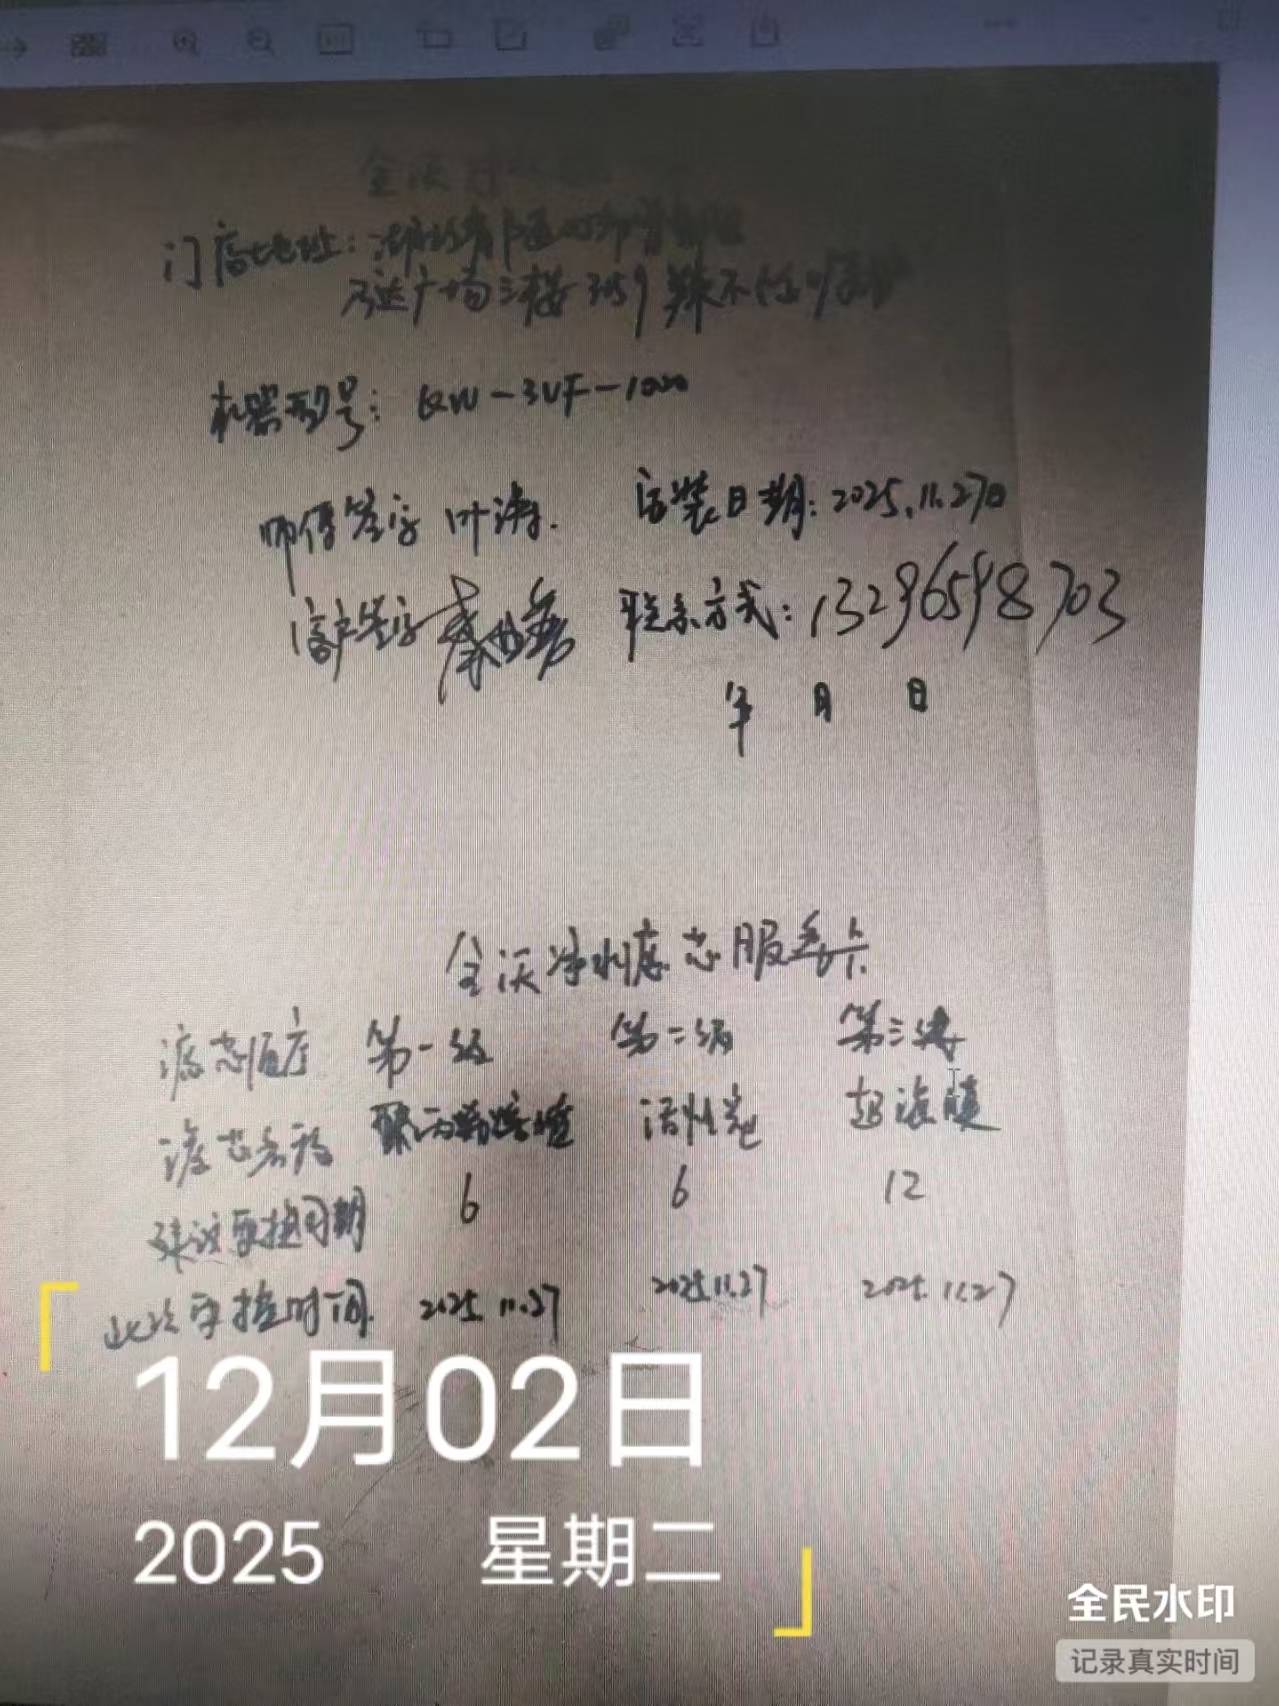 全沃
门店地址：湖北省
万达广场三楼3059辣不怕
机器型号：QW-3UF-1000
师傅签字 叶涛. 安装日期：2025.11.27日
客户签字 联系方式：13296598703
年 月 日
全沃净水滤芯服务卡
滤芯顺序 第一级 第二级 第三级
滤芯名称 聚丙烯熔喷 活性炭 超滤膜
建议更换周期 6 6 12
此次更换时间 2025.11.27 2025.11.27 2025.11.27
12月02日
2025 星期二
全民水印
记录真实时间